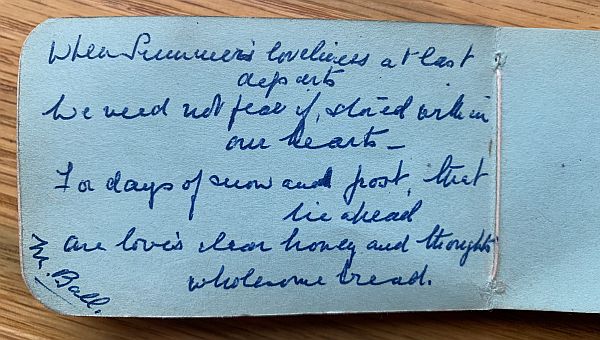 When Summer's loveliness at last
departs
We need not fear if, stored within
our hearts -
For days of snow and frost, that
lie ahead
are love's clear honey and thoughts
wholesome bread.
Mr. Ball.